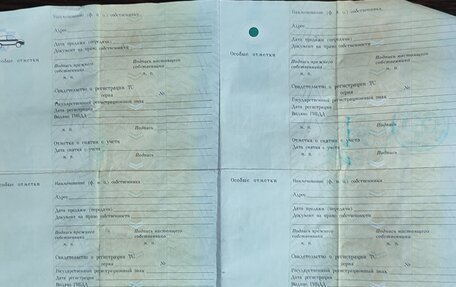 Наименование (ф. и. о.) собственника
Адрес
Дата продажи (передачи)
Документ на право собственности
Особые отметки
Подпись прежнего собственника
Подпись настоящего собственника
М. П.
М. П.
Свидетельство о регистрации ТС
серия №
Государственный регистрационный знак
Дата регистрации
Выдано ГИБДД
М. П.
Подпись
Отметка о снятии с учета
Дата снятия с учета
М. П.
Подпись
Наименование (ф. и. о.) собственника
Адрес
Дата продажи (передачи)
Документ на право собственности
Особые отметки
Подпись прежнего собственника
Подпись настоящего собственника
М. П.
М. П.
Свидетельство о регистрации ТС
серия №
Государственный регистрационный знак
Дата регистрации
Выдано ГИБДД
М. П.
Подпись
Отметка о снятии с учета
Дата снятия с учета
М. П.
Подпись
Особые отметки
Наименование (ф. и. о.) собственника
Адрес
Дата продажи (передачи)
Документ на право собственности
Подпись прежнего собственника
Подпись настоящего собственника
М. П.
М. П.
Свидетельство о регистрации ТС
серия №
Государственный регистрационный знак
Дата регистрации
Выдано ГИБДД
Особые отметки
Наименование (ф. и. о.) собственника
Адрес
Дата продажи (передачи)
Документ на право собственности
Подпись прежнего собственника
Подпись настоящего собственника
М. П.
М. П.
Свидетельство о регистрации ТС
серия №
Государственный регистрационный знак
Дата регистрации
Выдано ГИБДД